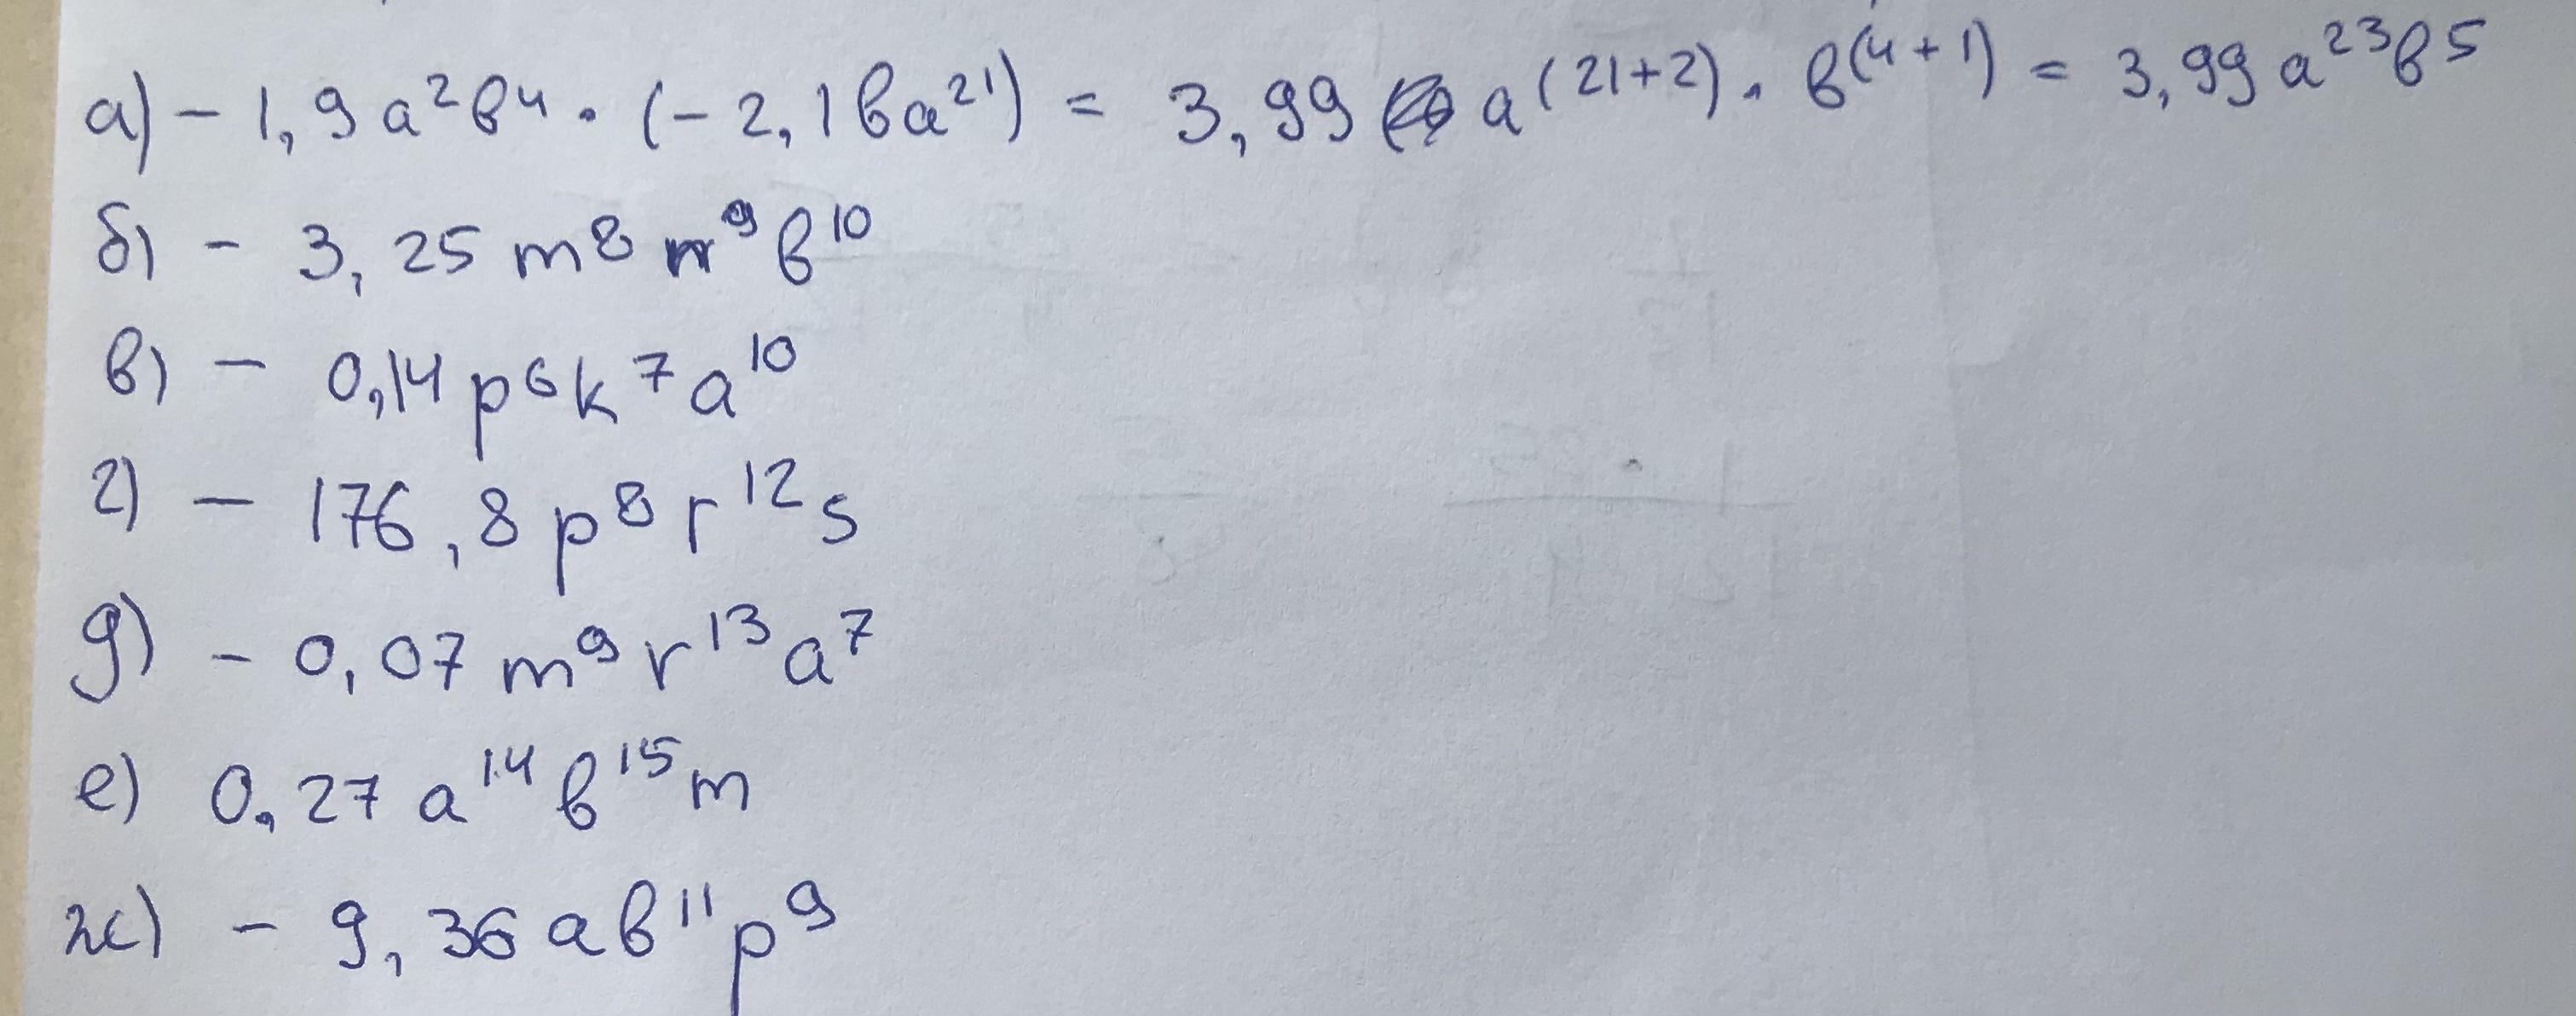 а) - 1,9 a²b⁴ · (- 2,1 b a²¹) = 3,99 a⁽²¹⁺²⁾ · b⁽⁴⁺¹⁾ = 3,99 a²³b⁵
б) - 3,25 m⁸ n⁹ b¹⁰
в) - 0,14 p⁶ k⁷ a¹⁰
г) - 176,8 p⁸ r¹² s
д) - 0,07 m⁹ r¹³ a⁷
е) 0,27 a¹⁴ b¹⁵ m
ж) - 9,36 a b¹¹ p⁹